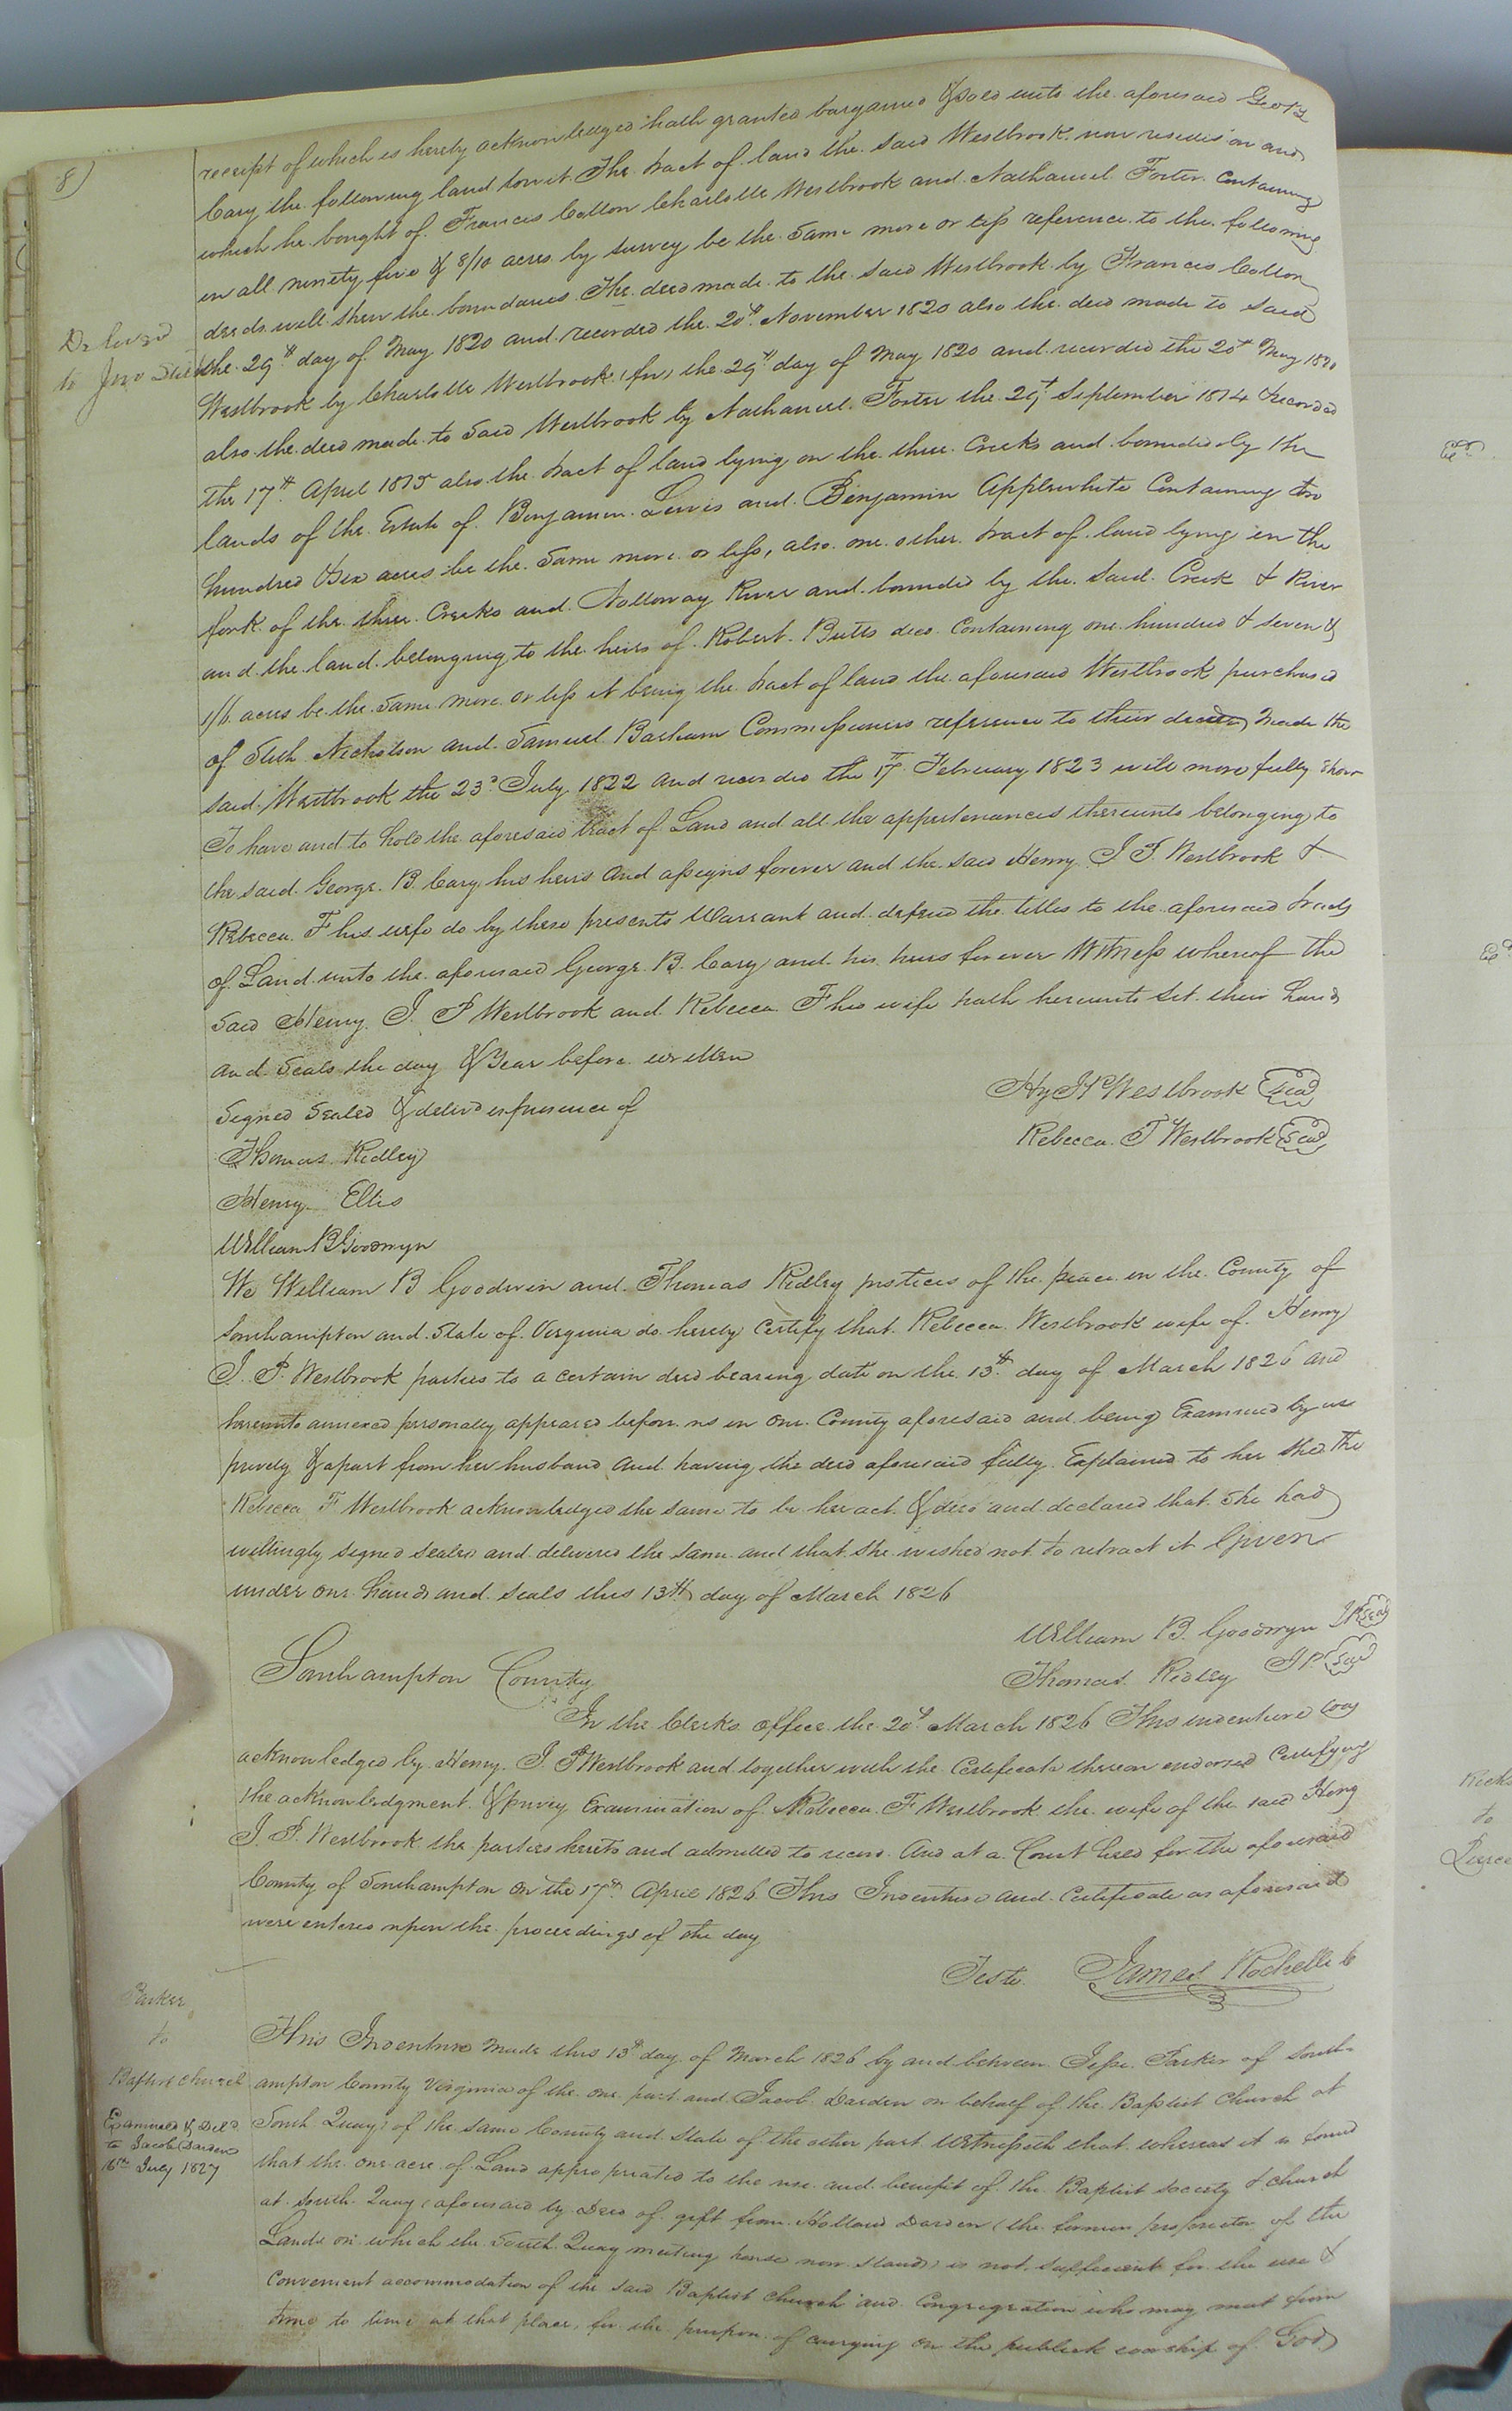 8)
receipt of which is hereby acknowledged hath granted bargained & sold unto the aforesaid George
Cary the following land towit. The tract of land the said Westbrook now resides on and
which he bought of Francis Cotton Charlotte Westbrook and Nathaniel Foster Containing
in all ninety five & 8/10 acres by survey be the same more or less reference to the following
deeds will shew the boundaries The deed made to the said Westbrook by Francis Cotton
Delivered
the 29th day of May 1820 and recorded the 20th November 1820 also the deed made to said
to Jno
Westbrook by Charlotte Westbrook the 29th day of May 1820 and recorded the 20th May 1820
also the deed made to said Westbrook by Nathaniel Foster the 29th September 1814 & recorded
the 17th April 1815 also the tract of land lying on the three Creeks and bounded by the
lands of the Estate of Benjamin Lewis and Benjamin Applewhite Containing
hundred & six acres be the same more or less, also one other tract of land lying in the
fork of the three Creeks and Nottoway River and bounded by the said Creek & River
and the land belonging to the heirs of Robert Butts decd. Containing one hundred & seven &
1/6 acres be the same more or less it being the tract of land the aforesaid Westbrook purchased
of Nicholson and Samuel Barham Commissioners reference to their deed made the
said Westbrook the 23d July 1822 and recorded the 17th February 1823 will more fully shew
To have and to hold the aforesaid tract of Land and all the appertenances thereunto belonging to
the said George B. Cary his heirs and assigns forever and the said Henry J. P. Westbrook &
Rebecca F his wife do by these presents Warrant and defend the titles to the aforesaid tracts
of Land unto the aforesaid George B. Cary and his heirs forever Witness whereof the
said Henry J. P Westbrook and Rebecca F his wife hath hereunto set their hands
and Seals the day & Year before written
Hy J P Westbrook Seal
Signed Sealed & delivd in presence of
Rebecca F Westbrook Seal
Thomas Ridley
Henry Ellis
William B Goodwyn
We William B Goodwin and Thomas Ridley justices of the peace in the County of
Southampton and State of Virginia do hereby Certify that Rebecca Westbrook wife of Henry
J. P. Westbrook parties to a certain deed bearing date on the 13th day of March 1826 and
hereunto annexed personally appeared before us in our County aforesaid and being Examined by us
privily & apart from her husband and having the deed aforesaid fully Explained to her she the
Rebecca F Westbrook acknowledged the same to be her act & deed and declared that she had
willingly signed sealed and delivered the same and that she wished not to retract it Given
under our hands and seals this 13th day of March 1826
William B. Goodwyn JP Seal
Thomas Ridley JP Seal
Southampton County
In the Clerks office the 20th March 1826 This indenture was
acknowledged by Henry J. P Westbrook and together with the Certificate thereon endorsed Certifying
the acknowledgment & privy Examination of Rebecca F Westbrook the wife of the said Henry
J. P. Westbrook the parties hereto and admitted to record. And at a Court held for the aforesaid
County of Southampton on the 17th April 1826 This Indenture and Certificate as aforesaid
were entered upon the proceedings of the day
Teste James Rochelle C
Parker
to
Baptist Church
Examined & Deld
to Jacob Darden
16th July 1827
This Indenture made this 13th day of March 1826 by and between Jesse Parker of South-
ampton County Virginia of the one part and Jacob Darden on behalf of the Baptist Church at
South Quay of the same County and State of the other part Witnesseth that whereas it is found
that the one acre of Land appropriated to the use and benefit of the Baptist Society & church
at South Quay aforesaid by Deed of gift from Holland Darden (the former proprietor of the
Lands on which the South Quay meeting house now stands) is not sufficient for the use &
convenient accommodation of the said Baptist Church and Congregation who may meet from
time to time at that place, for the purpose of carrying on the publick worship of God
Ricks
to